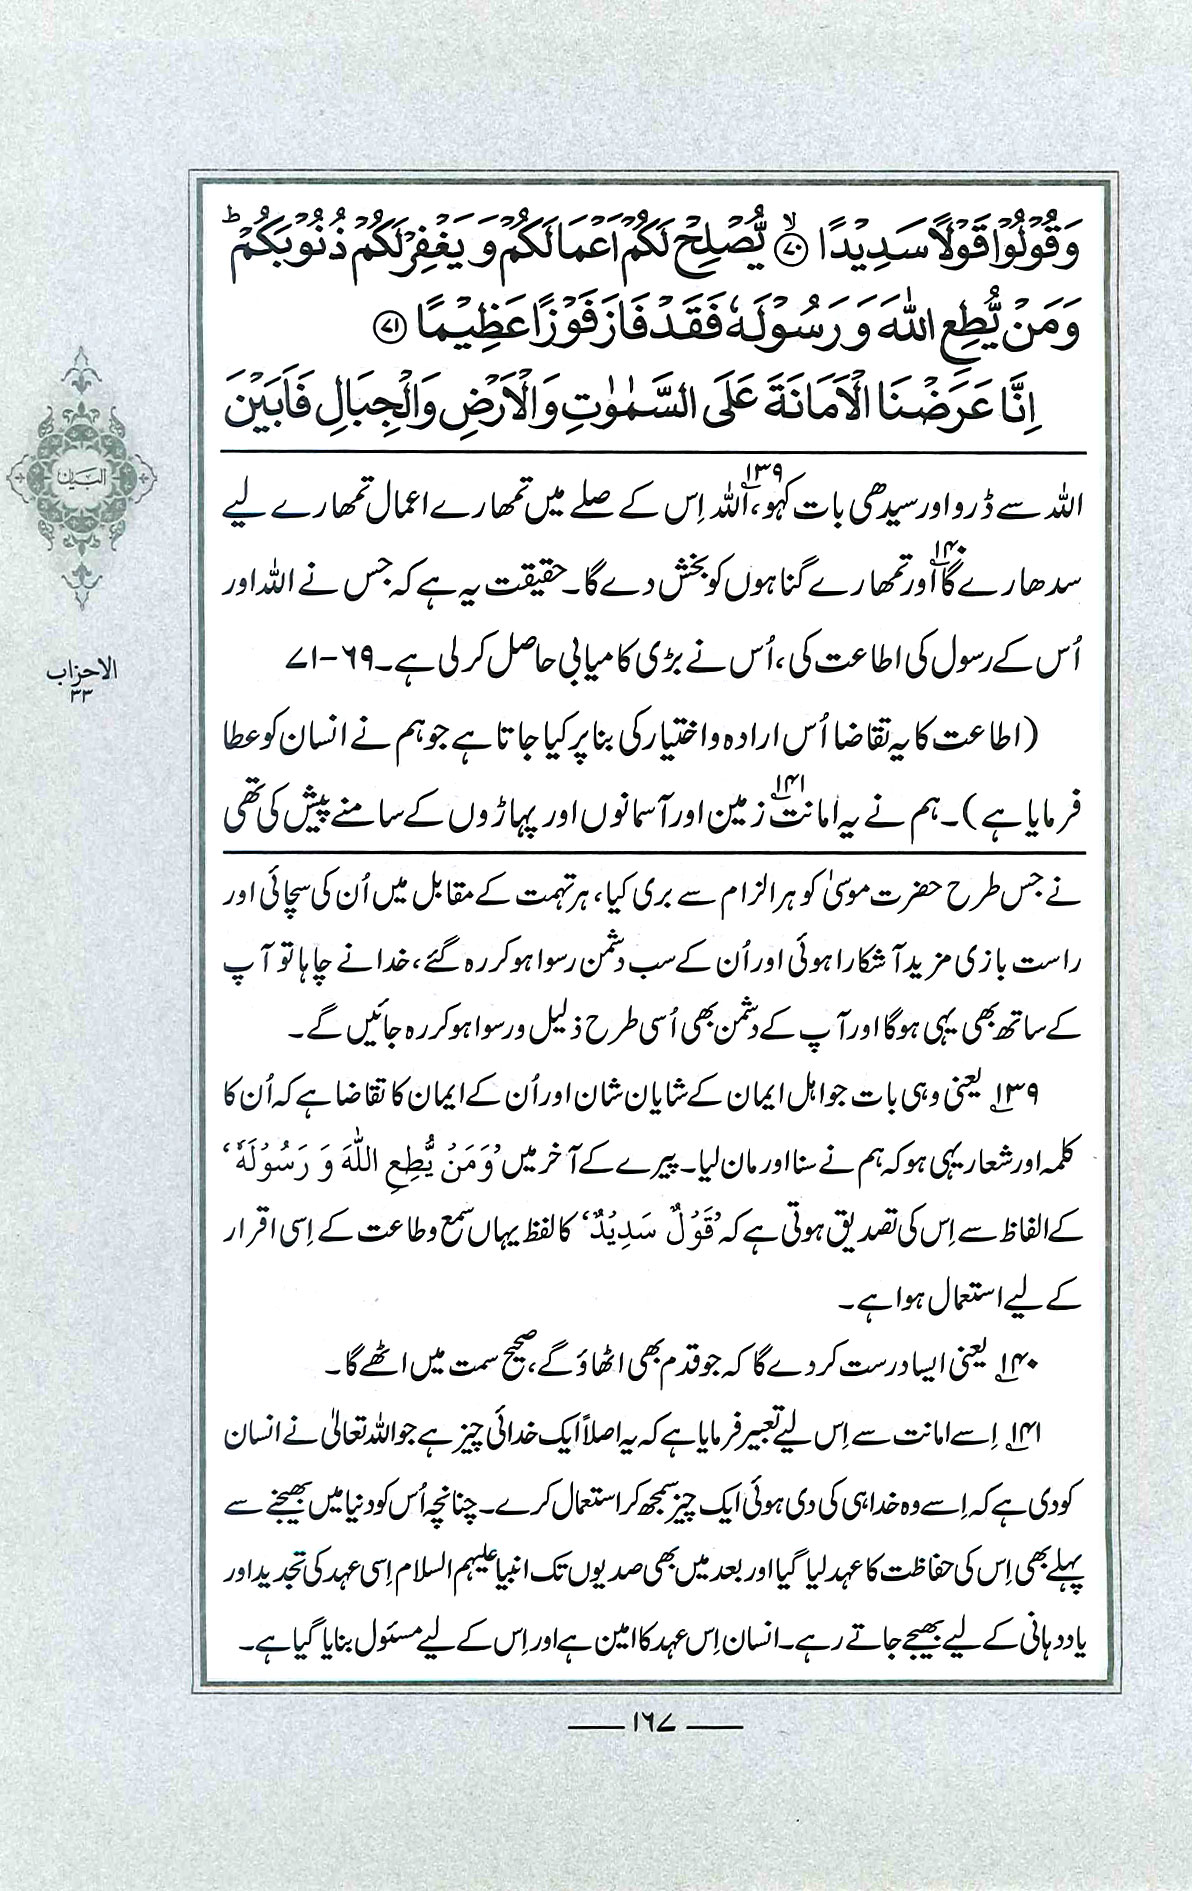 وَقُوْلُوْا قَوْلًا سَدِيْدًا ﴿۷۰﴾ۙ يُّصْلِحْ لَكُمْ اَعْمَالَكُمْ وَ يَغْفِرْ لَكُمْ ذُنُوْبَكُمْؕ
وَمَنْ يُّطِعِ اللّٰهَ وَ رَسُوْلَهٗ فَقَدْ فَازَ فَوْزًا عَظِيْمًا ﴿۷۱﴾
اِنَّا عَرَضْنَا الْاَمَانَةَ عَلَى السَّمٰوٰتِ وَالْاَرْضِ وَالْجِبَالِ فَاَبَيْنَ
اللہ سے ڈرو اور سیدھی بات کہو،۱۳۹ اللہ اِس کے صلے میں تمھارے اعمال تمھارے لیے
سدھارے گا۱۴۰ اور تمھارے گناہوں کو بخش دے گا۔ حقیقت یہ ہے کہ جس نے اللہ اور
اُس کے رسول کی اطاعت کی، اُس نے بڑی کامیابی حاصل کر لی ہے۔ ۶۹-۷۱
(اطاعت کا یہ تقاضا اُس ارادہ و اختیار کی بنا پر کیا جاتا ہے جو ہم نے انسان کو عطا
فرمایا ہے)۔ ہم نے یہ امانت۱۴۱ زمین اور آسمانوں اور پہاڑوں کے سامنے پیش کی تھی
نے جس طرح حضرت موسیٰ کو ہر الزام سے بری کیا، ہر تہمت کے مقابل میں اُن کی سچائی اور
راست بازی مزید آشکارا ہوئی اور اُن کے سب دشمن رسوا ہو کر رہ گئے، خدا نے چاہا تو آپ
کے ساتھ بھی یہی ہوگا اور آپ کے دشمن بھی اُسی طرح ذلیل و رسوا ہو کر رہ جائیں گے۔
۱۳۹ یعنی وہی بات جو اہل ایمان کے شایان شان اور اُن کے ایمان کا تقاضا ہے کہ اُن کا
کلمہ اور شعار یہی ہو کہ ہم نے سنا اور مان لیا۔ پیرے کے آخر میں ’وَمَنْ يُّطِعِ اللّٰهَ وَ رَسُوْلَهٗ‘
کے الفاظ سے اِس کی تصدیق ہوتی ہے کہ ’قَوْلٌ سَدِيْدٌ‘ کا لفظ یہاں سمع و طاعت کے اِسی اقرار
کے لیے استعمال ہوا ہے۔
۱۴۰ یعنی ایسا درست کر دے گا کہ جو قدم بھی اٹھاؤ گے، صحیح سمت میں اٹھے گا۔
۱۴۱ اِسے امانت سے اِس لیے تعبیر فرمایا ہے کہ یہ اصلاً ایک خدائی چیز ہے جو اللہ تعالیٰ نے انسان
کو دی ہے کہ اِسے وہ خدا ہی کی دی ہوئی ایک چیز سمجھ کر استعمال کرے۔ چنانچہ اُس کو دنیا میں بھیجنے سے
پہلے بھی اِس کی حفاظت کا عہد لیا گیا اور بعد میں بھی صدیوں تک انبیا علیہم السلام اِسی عہد کی تجدید اور
یاددہانی کے لیے بھیجے جاتے رہے۔ انسان اِس عہد کا امین ہے اور اِس کے لیے مسئول بنایا گیا ہے۔
البیان
الاحزاب
۳۳
۱۶۷